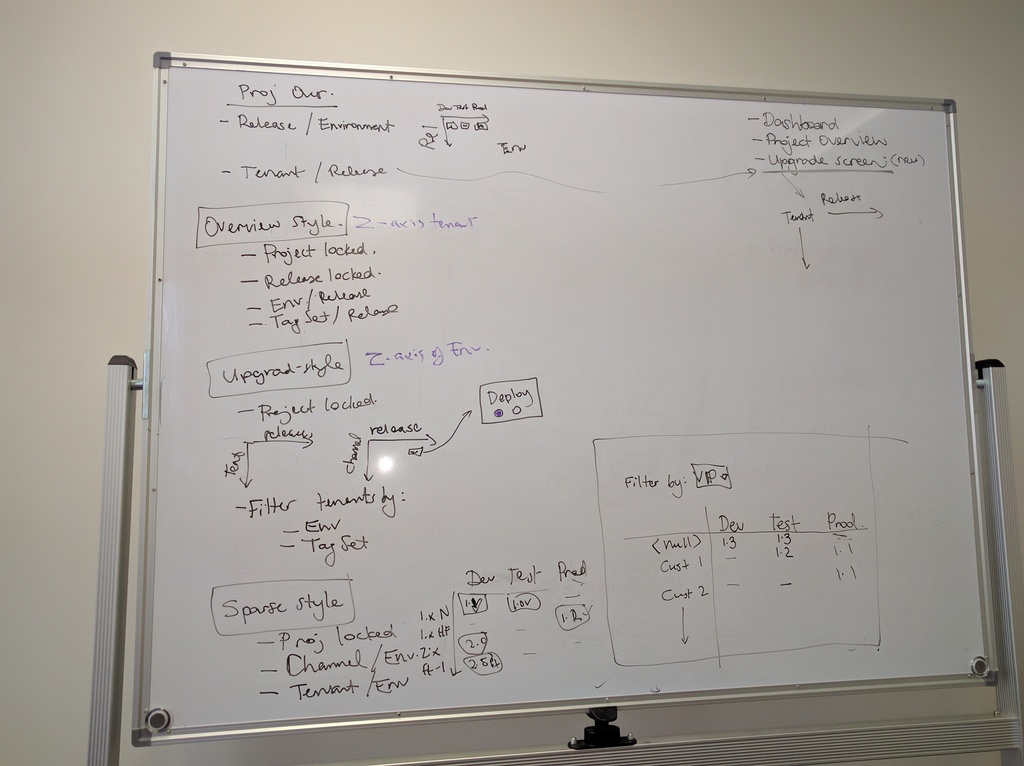 Proj Over.
- Release / Environment
Dev Test Prod
Env
- Tenant / Release
- Dashboard
- Project Overview
- Upgrade screen (new)
Release
Tenant
Overview style. Z-axis tenant
- Project locked.
- Release locked.
- Env / Release
- Tag Set / Release
Upgrad-style Z-axis of Env.
- Project locked.
release
Tent
release
channel
Deploy
- Filter tenants by:
- Env
- Tag Set
Sparse style
- Proj locked
- Channel / Env
- Tenant / Env
Dev Test Prod
1.x N 1.0✓ —
1.x HF - 1.2 ✓
2.x 2.0
ft-1 —
Filter by: VIP
Dev Test Prod.
<null> 1.3 1.3 —
Cust 1 — 1.2 1.1
Cust 2 — — 1.1